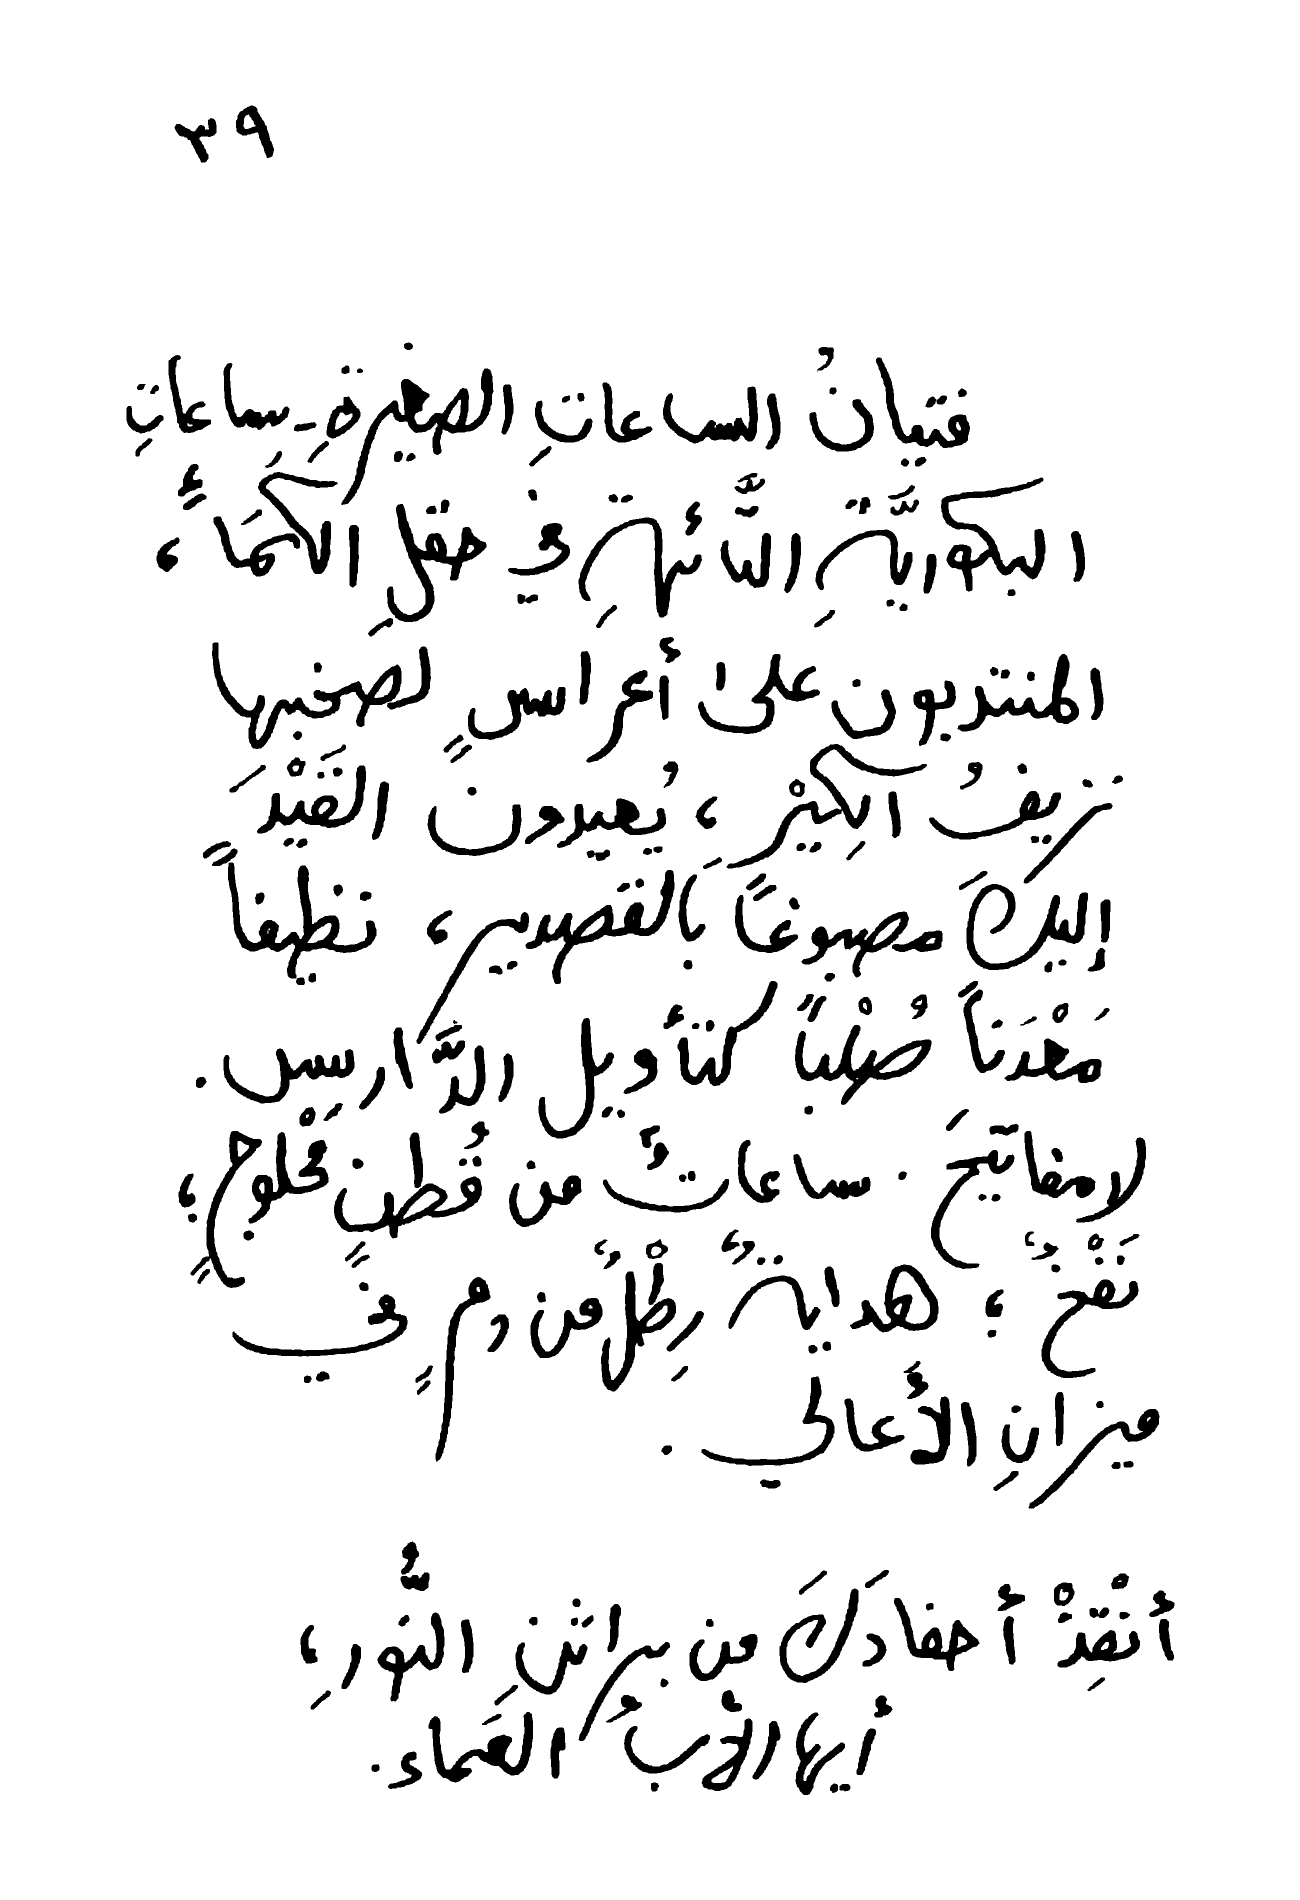 ٣٩
فتيانُ الساعاتِ الصغيرةِ ـ ساعاتِ
البكوريَّةِ التَّائهةِ في حقلِ الكَمَأ،
المنتدبون على أعراسٍ لصخبها
نزيفُ الكِيْرِ، يُعيدون القَيْدَ
إليكَ مصبوغاً بالقصدير، نظيفاً
مَعْدَناً صُلْباً كتأويل الدَّارسين.
لا مفاتيحَ. ساعاتٌ من قُطنٍ مَحْلوجٍ؛
نَفْخٌ؛ هدايةٌ رِطْلٌ من دمٍ في
ميزانِ الأَعالي.
أنْقِذْ أحفادَكَ من براثنِ النُّورِ،
أيها الأبُ العَماء.